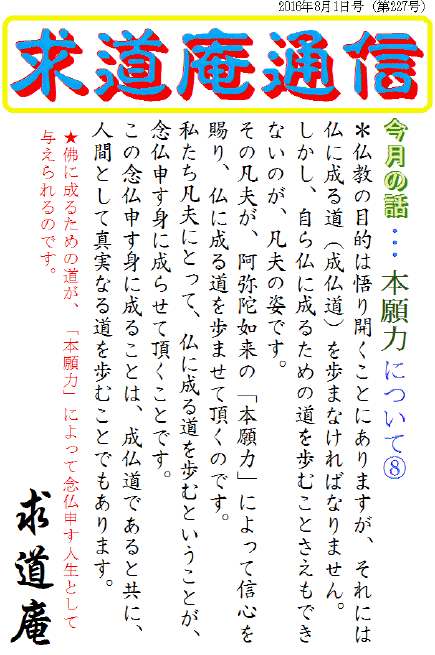 2016年8月1日号（第227号）
求道庵通信
今月の話・・・本願力について⑧
＊仏教の目的は悟り開くことにありますが、それには
仏に成る道（成仏道）を歩まなければなりません。
しかし、自ら仏に成るための道を歩むことさえもでき
ないのが、凡夫の姿です。
その凡夫が、阿弥陀如来の「本願力」によって信心を
賜り、仏に成る道を歩ませて頂くのです。
私たち凡夫にとって、仏に成る道を歩むということが、
念仏申す身に成らせて頂くことです。
この念仏申す身に成ることは、成仏道であると共に、
人間として真実なる道を歩むことでもあります。
★佛に成るための道が、「本願力」によって念仏申す人生として
与えられるのです。
求道庵